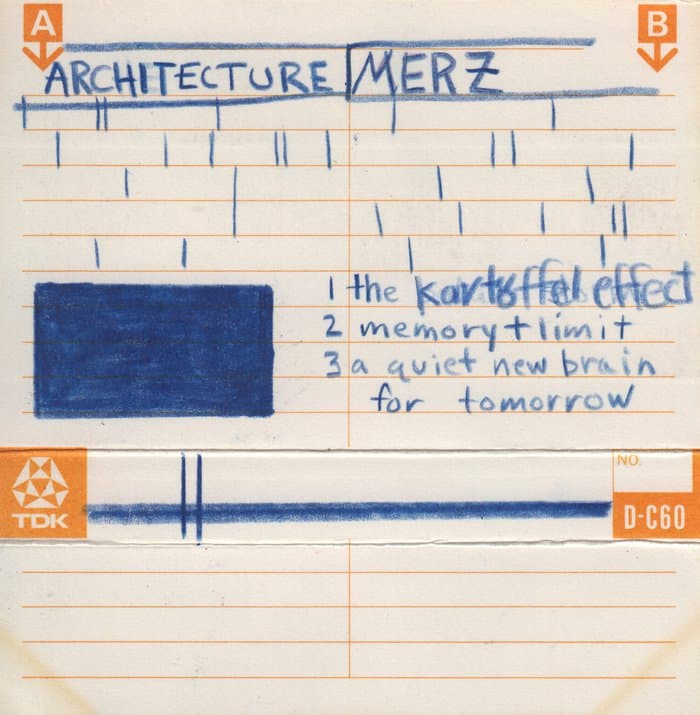 A B
ARCHITECTURE MERZ
1 the kartoffel effect
2 memory + limit
3 a quiet new brain
for tomorrow
NO.
TDK D-C60